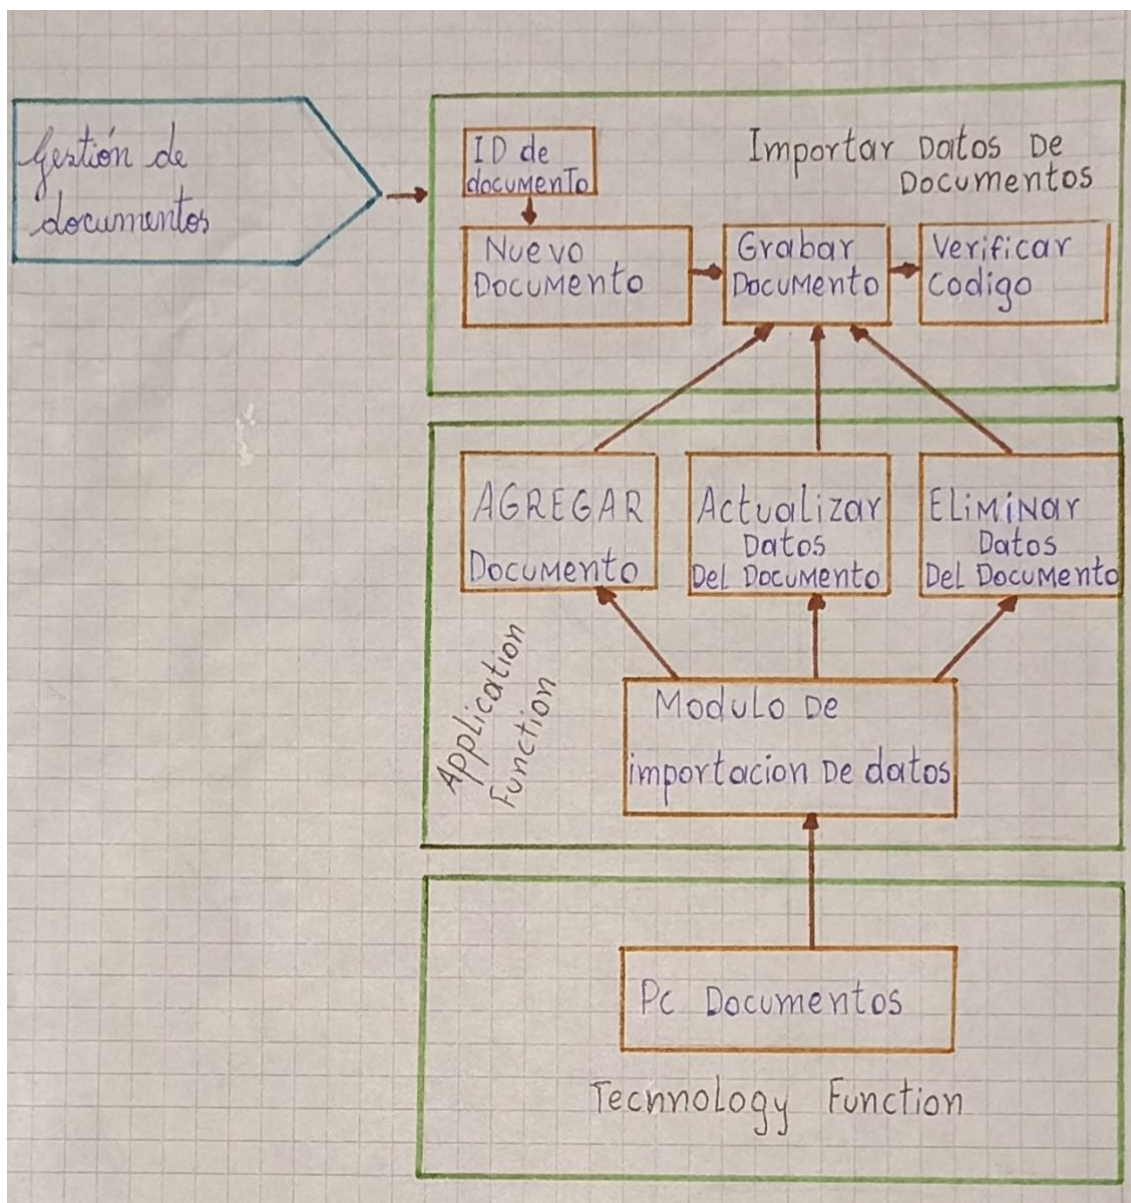 Gestión de
documentos
ID de
documento
Importar Datos De
Documentos
Nuevo
Documento
Grabar
Documento
Verificar
Codigo
AGREGAR
Documento
Actualizar
Datos
Del Documento
Eliminar
Datos
Del Documento
Application
Function
Modulo De
importacion De datos
Pc Documentos
Technology Function